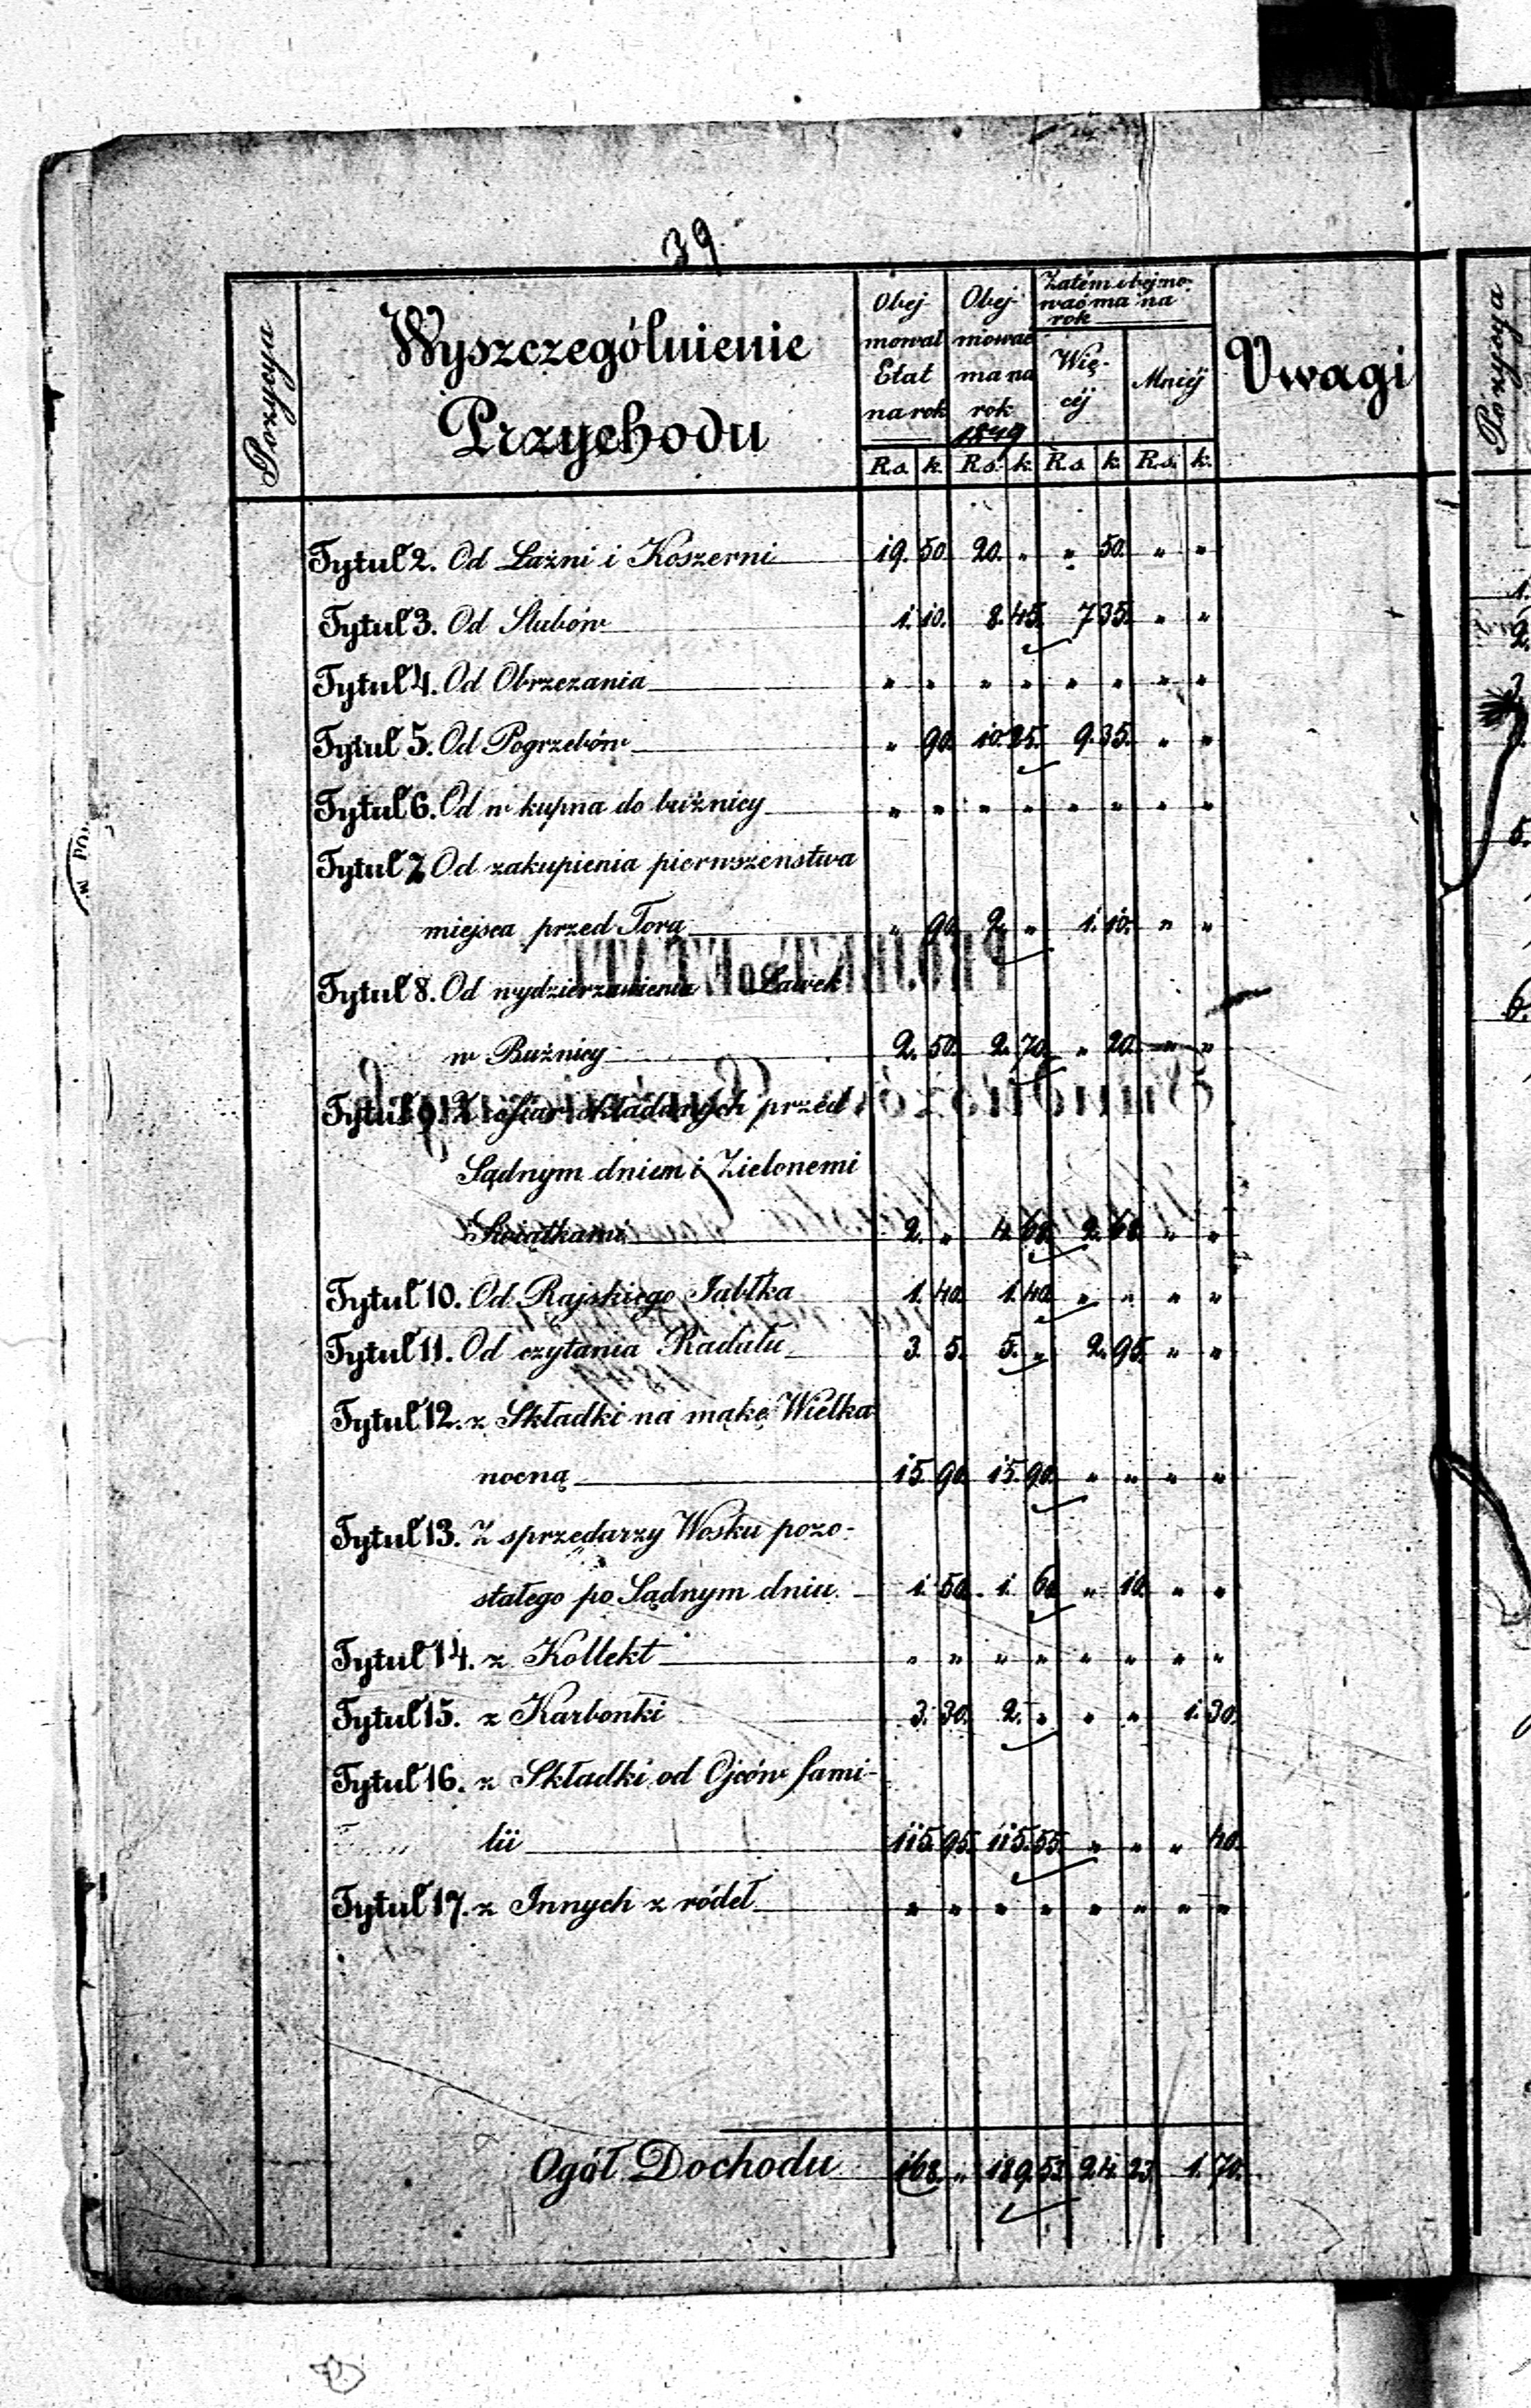 39
Pozycya
Wyszczególnienie
Przychodu
Obej-
mował
Etat
na rok
Obej-
mować
ma na
rok
1849
Zatém obejmo-
wać ma na
rok
Wię-
céj
Mniéj
Uwagi
Rs. k. Rs. k. Rs. k. Rs. k.
Tytuł 2. Od Łaźni i Koszerni 19. 50. 20. " " 50. " "
Tytuł 3. Od Slubów 1. 10. 8. 45. 7 35. " "
Tytuł 4. Od Obrzezania " " " " " " " "
Tytuł 5. Od Pogrzebów " 90. 10. 25. 9. 35. " "
Tytuł 6. Od w kupna do buźnicy " " " " " " " "
Tytuł 7. Od zakupienia pierwszenstwa
miejsca przed Torą " 90. 2. " 1. 10. " "
Tytuł 8. Od wydzierzawienia Ławek
w Buźnicy 2. 50. 2. 70. " 20. " "
Tytuł 9. Z ofiar składanych przed
Sądnym dniem i Zielonemi
Swiątkami 2. " 4. 68. 2. 68. " "
Tytuł 10. Od Rajskiego Jabłka 1. 40. 1. 40. " " " "
Tytuł 11. Od czytania Radału 3. 5. 5. " 2. 95. " "
Tytuł 12. z Składki na mąkę Wielka
nocną 15. 90. 15. 90. " " " "
Tytuł 13. Z sprzedarzy Wosku pozo-
stałego po Sądnym dniu. 1. 50. 1. 60. " 10. " "
Tytuł 14. z Kollekt " " " " " " " "
Tytuł 15. z Karbonki 3. 30. 2. " " " 1. 30.
Tytuł 16. z Składki od Ojców fami-
lii 115. 95. 115. 55. " " " 40.
Tytuł 17. z Innych z ródeł " " " " " " " "
Ogół Dochodu 168. " 189. 53. 24. 23. 1. 70.
Pozycya
1.
2.
3.
5.
6.